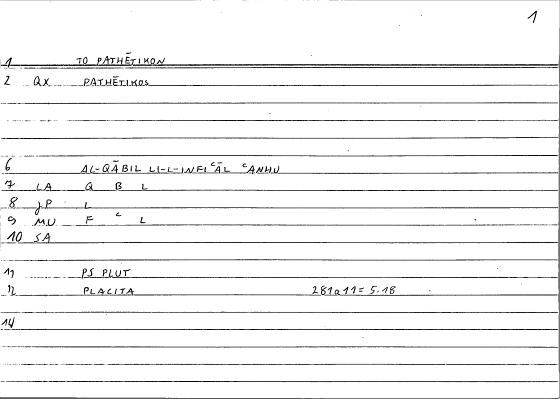 1
1 TO PATHĒTIKON
2 QX PATHĒTIKOS
6 AL-QĀBIL LI-L-INFIᶜĀL ᶜANHU
7 LA Q B L
8 JP L
9 MU F ᶜ L
10 SA
11 PS PLUT
12 PLACITA 281a11 = 5.18
14